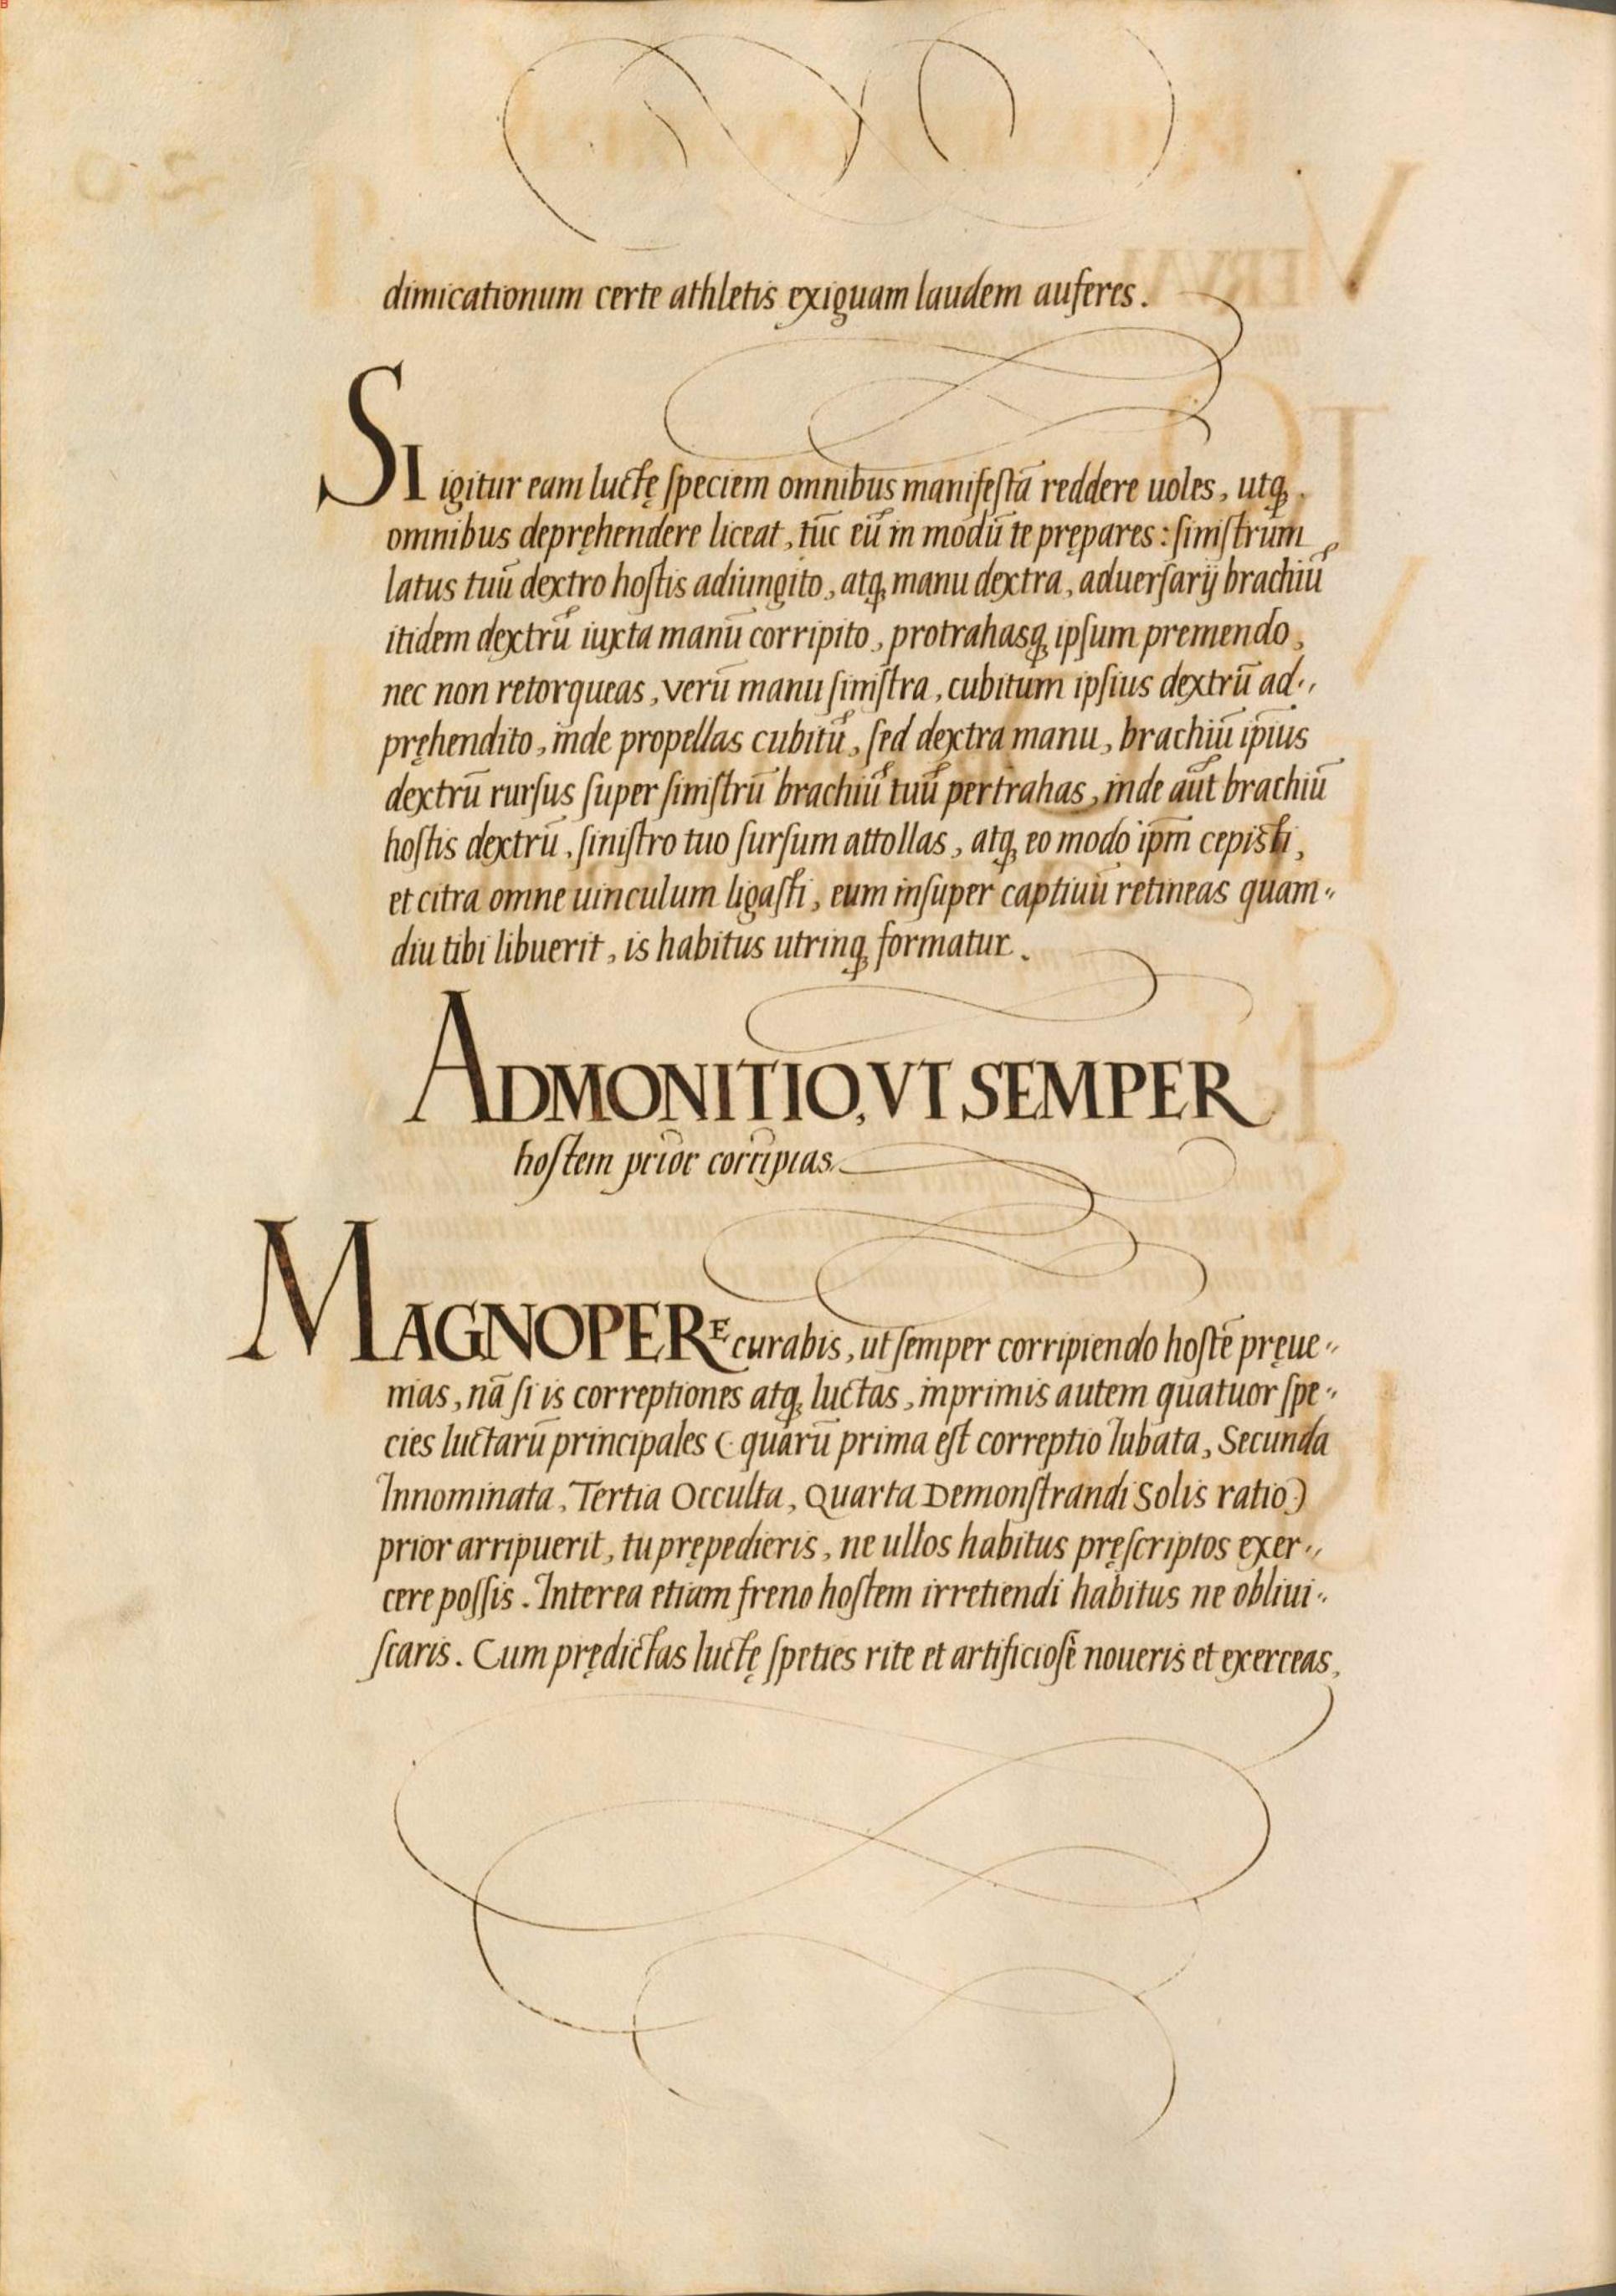 dimicationum certe athletis exiguam laudem auferes.
SI igitur eam luctę ſpeciem omnibus manifeſtā reddere uoles, utq᷒
omnibus depręhendere liceat, tūc eū in modū te prępares: ſiniſtrum
latus tuū dextro hoſtis adiungito, atq᷒ manu dextra, aduerſarij brachiū
itidem dextrū iuxta manū corripito, protrahasq᷒ ipſum premendo,
nec non retorqueas, verū manu ſiniſtra, cubitum ipſius dextrū ad-
pręhendito, inde propellas cubitū, ſed dextra manu, brachiū ip̄ius
dextrū rurſus ſuper ſiniſtrū brachiū tuū pertrahas, inde aūt brachiū
hoſtis dextrū, ſiniſtro tuo ſurſum attollas, atq᷒ eo modo ip̄m cepiſti,
et citra omne uinculum ligaſti, eum inſuper captiuū retineas quam-
diu tibi libuerit, is habitus utrinq᷒ formatur.
ADMONITIO, VT SEMPER
hoſtem prior corripias.
MAGNOPERE curabis, ut ſemper corripiendo hoſtē pręue-
nias, nā ſi is correptiones atq᷒ luctas, inprimis autem quatuor ſpe-
cies luctarū principales (quarū prima eſt correptio Iubata, Secunda
Innominata, Tertia Occulta, Quarta Demonſtrandi Solis ratio)
prior arripuerit, tu prępedieris, ne ullos habitus pręſcriptos exer-
cere poſſis. Interea etiam freno hoſtem irretiendi habitus ne obliui-
ſcaris. Cum prędictas luctę ſpeties rite et artificioſè noueris et exerceas,